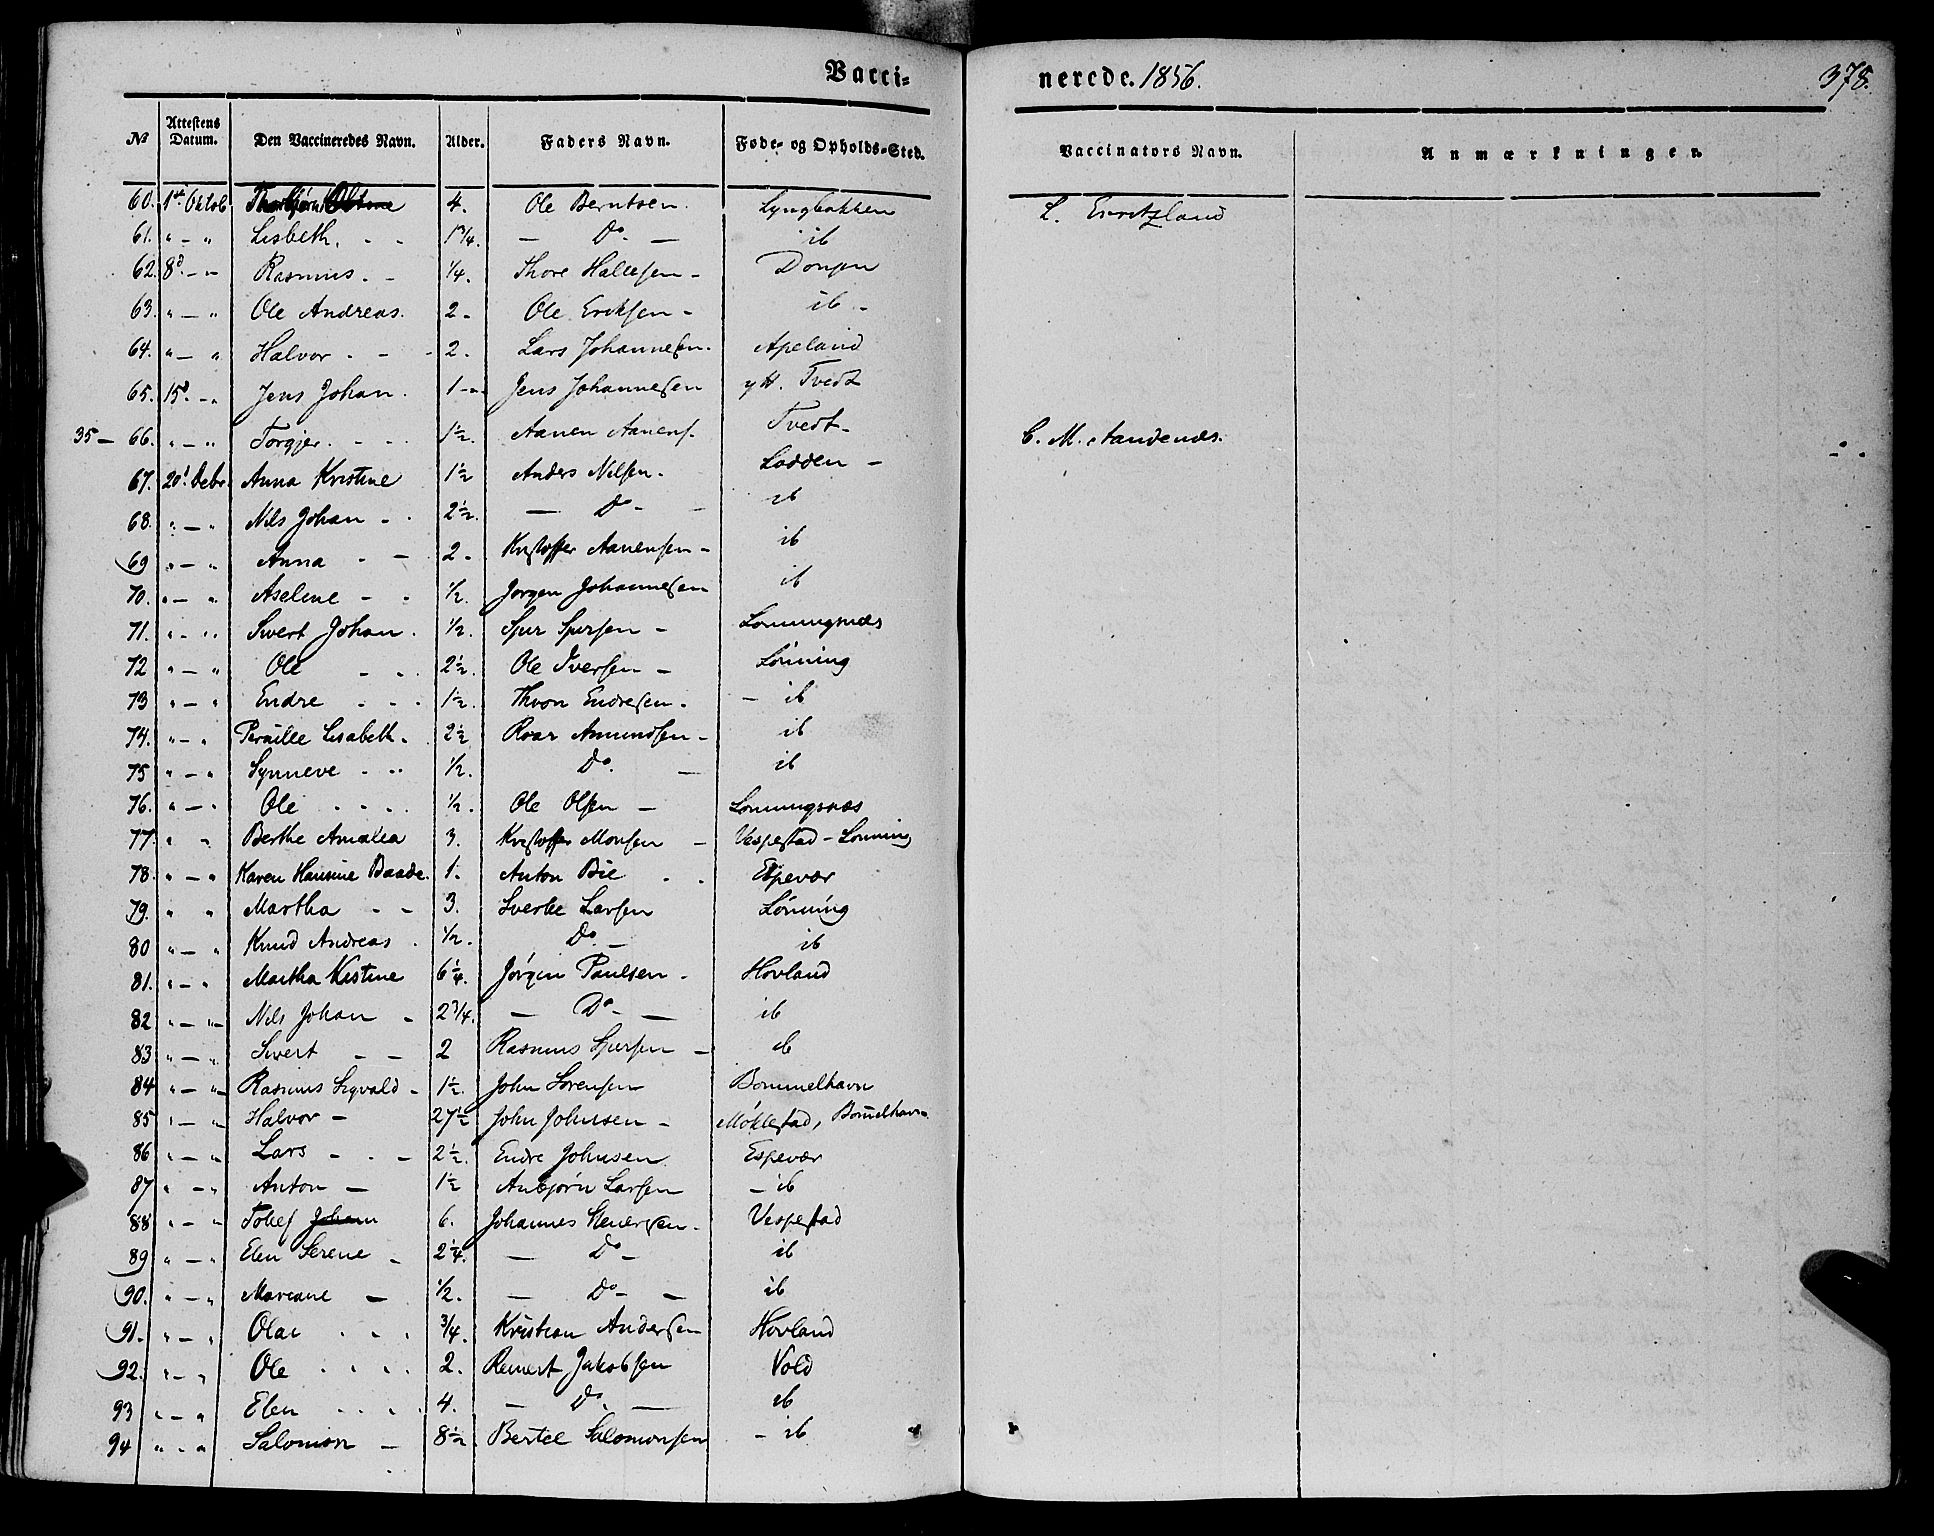 Vacci- nerede. 1856. 375.
No Attestens Datum. Den Vaccineredes Navn. Alder. Faders Navn. Føde- og Opholds-Sted. Vaccinators Navn. Anmærkningen
60. 1ste Oktob Thorbjørn 4. Ole Berntsen. Lyngbakken
61. " - " Lisbeth. - - 1 3/4. — Do. — ib
62. 8d. - " Rasmus. - 1/4. Thore - Dongen
63. " - " Ole Andreas. 2 - Ole Eriksen - ib -
64. " - " Halvor - - - 2. Lars Johannesen. Apeland
65. 15d. - " Jens Johan. 1 - " Jens Johannesen ytt. Tvedt
35 — 66. " - " Torgjer. - - - 1 1/2. Aanen Aanens. Tvedt - C. M. Sandenæs.
67. 20d. Debr. Anna Kristine 1 1/2 Anders Nilsen. Lodden -
68. " - " Nils Johan - - 2 1/2. — Do - - ib
69 " - " Anna - - 2 - Kristoffer Aanensen - ib
70. " - " Aselene - - 1/2. Jørgen Johannesen ib
71. " - " Sivert Johan. 1/2. Sjur Sjursen - Lønningsnæs
72 " - " Ole - - - 2 1/2. Ole Iversen - Lönning
73 " - " Endre - - - 1 1/2. Endresen. - ib
74. " - " Pernille Lisabeth. 2 1/2 Roar Amundsen - ib
75 " - " Synneve - - 1/2. Do. — ib
76. " - " Ole - - - - 1/2. Ole Olsen — Lønningsnæs
77. " " Berthe Amalia 3. Kristoffer Monsen - Vespestad - Lønning
78. " - " Karen Hansine Baade. 1. Anton Bie - - Espevær
79. " " Martha - - 3. Sverke Larsen Lönning
80 " - " Knud Andreas. 1/2. Do. — ib
81. " - " Martha Kistine 6 1/4. Jörgen Paulsen - Hovland
82 " - " Nils Johan - 2 3/4. — Do - — ib
83 " - " Sivert - - 2 Rasmus Sjursen - ib
84 " - " Rasmus Sigvald - 1 1/2. John Sørensen Bommelhavn
85 " - " Halvor - 27 1/2 John Johnsen - Möklestad, Bom̅elhavn
86 " - " Lars - - - 2 1/2. Endre Johnsen Espevær
87 " - " Anton — 1 1/2 Anbjørn Larsen - ib
88 " - " Tolef Johan 6. Johannes Stenersen. Vespestad
89 " - " Elen Serene - 2 1/4. — Do - ib
90. " - " Mariane — 1/2. — Do - — ib
91. " - " Olai . . . 3/4. Kristian Andersen Hovland
92. " - " Ole . . . . 2. Reinert Jakobsen Vold
93 " - " Elen . . . . 4. — Do. — ib
94 " - " Salomon — 8 1/2 Bertel Salomonsen - ib